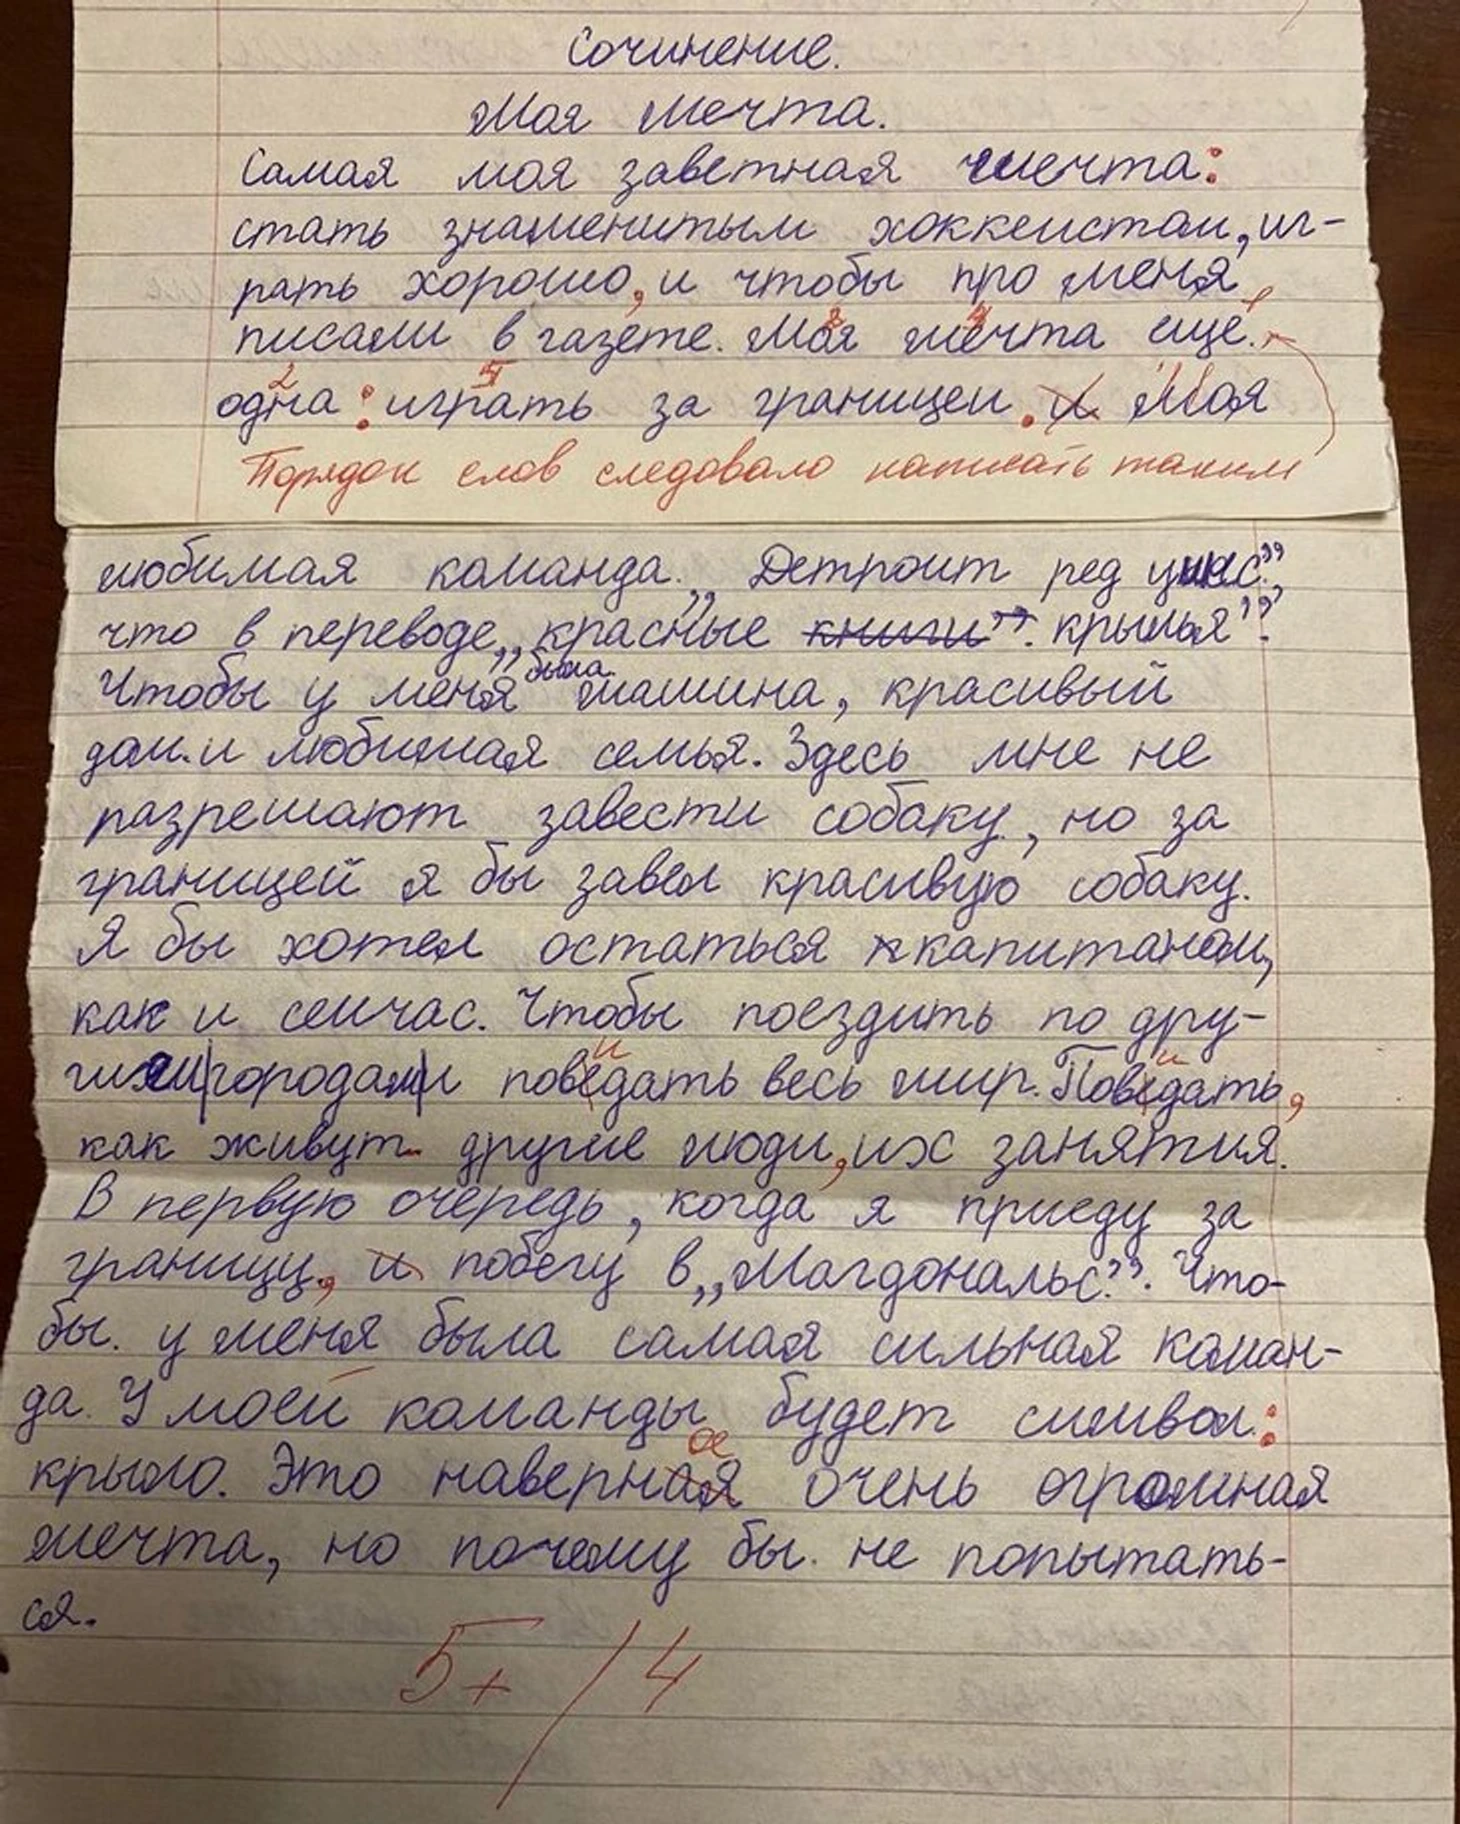 Сочинение.
Моя мечта.
Самая моя заветная мечта:
стать знаменитым хоккеистом, иг-
рать хорошо, и чтобы про меня
писали в газете. Моя мечта еще.
одна: играть за границей. и Моя
Порядок слов следовало написать таким
любимая команда „Детроит ред уинс”,
что в переводе „красные книги”. крылья”.
Чтобы у меня была машина, красивый
дом и любимая семья. Здесь мне не
разрешают завести собаку, но за
границей я бы завел красивую собаку.
Я бы хотел остаться капитаном,
как и сейчас. Чтобы поездить по дру-
гим городам и поведать весь мир. Поведать,
как живут другие люди, их занятия.
В первую очередь, когда я приеду за
границу, и побегу в „Магдональс”. Что-
бы у меня была самая сильная коман-
да. У моей команды будет символ:
крыло. Это наверная очень огромная
мечта, но почему бы не попытать-
ся.
5+ / 4